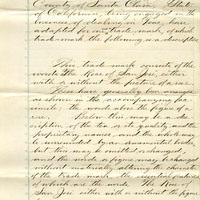 County of Santa Clara, State
of California, being engaged in the
business of dealing in Teas, have
adopted for our trade mark, of which
trade mark the following is a description
This trade mark consists of the
words The Rose of San Jose, either
with or without the picture of a rose.
These have generally been arranged
as shown in the accompanying fac
simile, the words above the figure of a
rose. Below this may be a de-
scription of the tea, or its quality, and the
proprietary names, and the whole may
be surrounded by an ornamental border,
but this may be omitted or changed,
and the words or figure may be changed
without materially altering the character
of the trade mark the essential features
of which are the words The Rose of
San Jose either with or without the figure